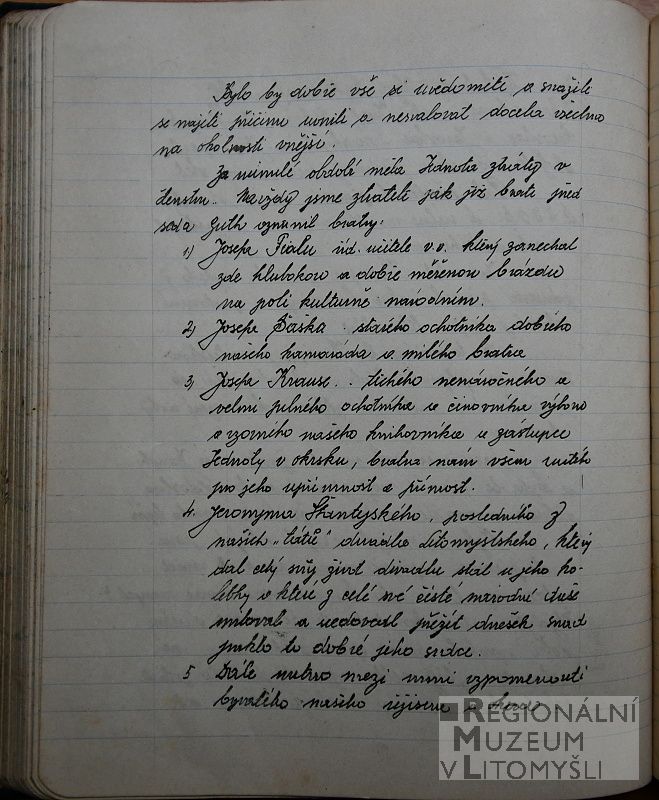 Bylo by dobře vše si uvědomiti a snažiti
se najíti příčinu uvnitř a nesvalovat docela všechno
na okolnosti vnější.
Za minulé období měla Jednota ztráty v
členstvu. Navždy jsme ztratili jak již bratr před
seda Guth vzpomněl bratry:
1) Josefa Fialu úd. učitele v.v. který zanechal
zde hlubokou a dobře měřenou brázdu
na poli kulturně národním.
2) Josefa Šaška starého ochotníka dobrého
našeho kamaráda a milého bratra
3) Josefa Krause.. tichého nenáročného a
velmi pilného ochotníka a činovníka výboru
a vzorného našeho knihovníka a zástupce
Jednoty v okrsku, bratra nám všem milého
pro jeho upřímnost a přímost.
4. Jeronyma Škantyského, posledního z
našich "tátů" divadla Litomyšlského, který
dal celý svůj život divadlu stál u jeho ko-
lébky a které z celé své čisté národní duše
miloval a nedovedl přežít dnešek snad
puklo to dobré jeho srdce.
5 Dále nutno mezi nimi vzpomenouti
bývalého našeho režisera a
REGIONÁLNÍ
MUZEUM
V LITOMYŠLI